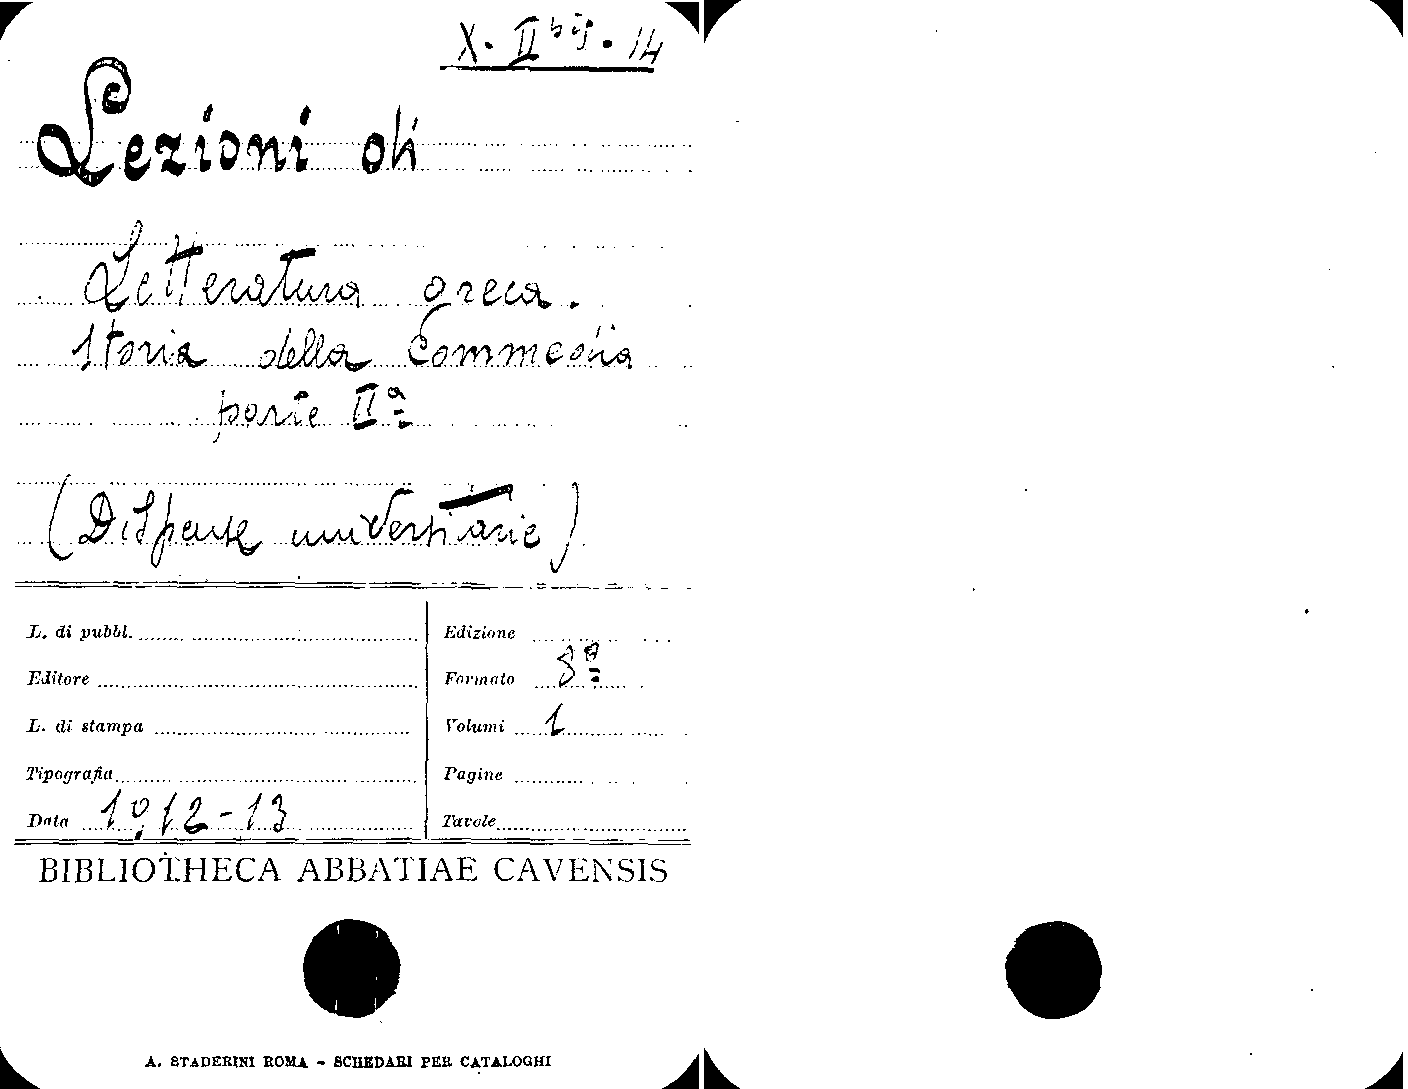 X. II bis. 14
Lezioni di
Letteratura greca.
Storia della Commedia
parte IIª
(Dispense universitarie)
L. di pubbl.
Editore
L. di stampa
Tipografia
Data 1912-13
Edizione
Formato 8º
Volumi 1
Pagine
Tavole
BIBLIOTHECA ABBATIAE CAVENSIS
A. STADERINI ROMA - SCHEDARI PER CATALOGHI